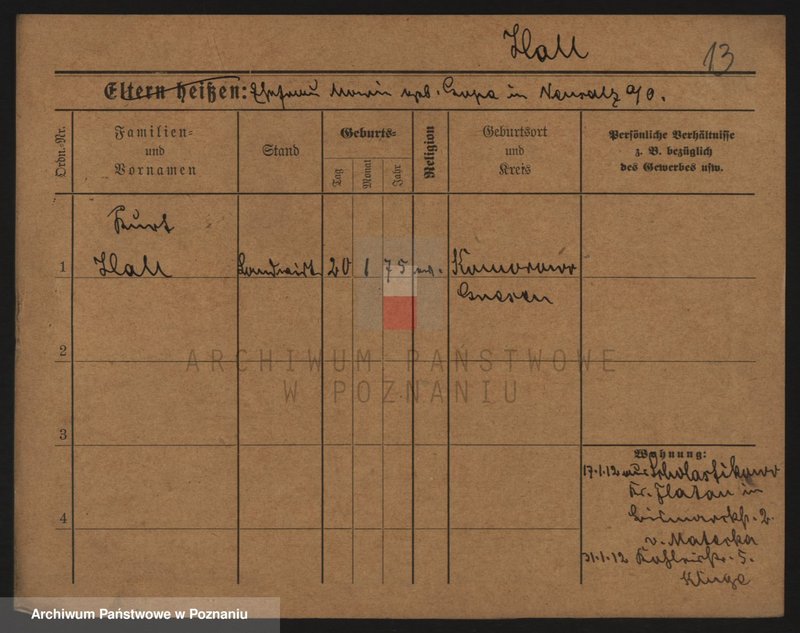 Hall
13
Eltern heißen: Ehefrau Maria geb. in Neusalz a/O.
Ordn.-Nr.
Familien- und Vornamen
Stand
Geburts-
Tag
Monat
Jahr
Religion
Geburtsort und Kreis
Persönliche Verhältnisse z. B. bezüglich des Gewerbes usw.
Kurt
1 Hall Landwirt 20 1 75 ev. Komorowo
Gnesen
2
ARCHIWUM PAŃSTWOWE
W POZNANIU
3
Wohnung:
17.1.12 aus Scholastikowo
Kr. Flatau in
Bismarckstr. 2
4
v. Matecka
31.1.12 5.
Kluge
Archiwum Państwowe w Poznaniu